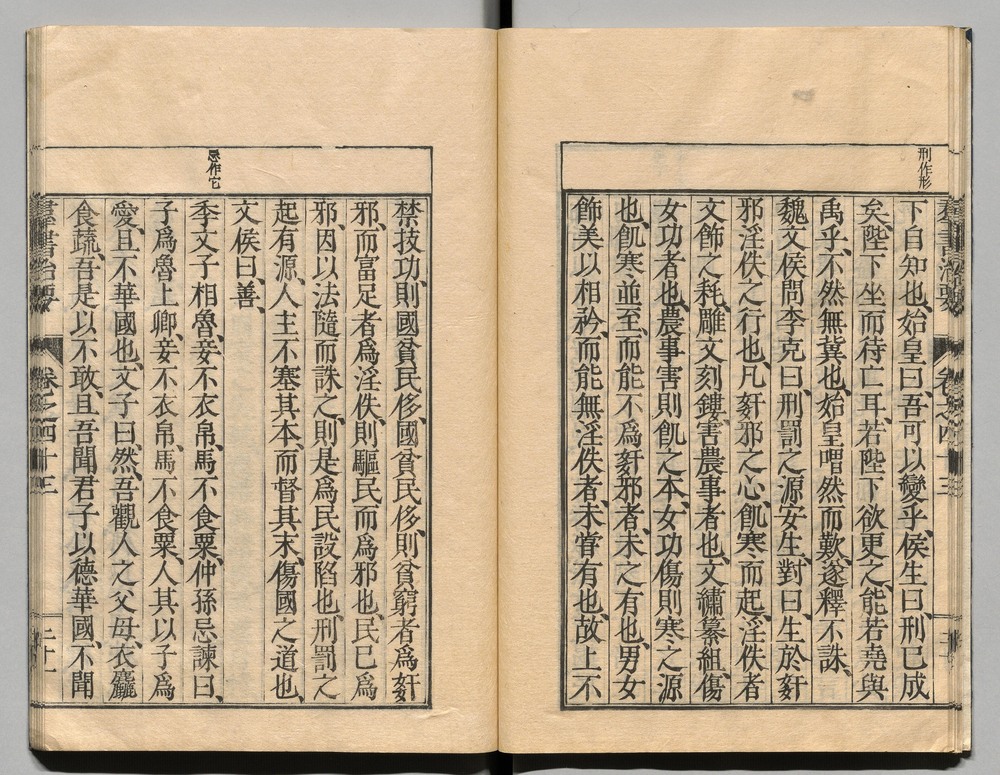 刑作形
下自知也、始皇曰、吾可以變乎、侯生曰、刑已成
矣、陛下坐而待亡耳、若陛下欲更之、能若堯與
禹乎、不然無冀也、始皇喟然而歎、遂釋不誅、
魏文侯問李克曰、刑罰之源安生、對曰、生於姧
邪淫佚之行也、凡姧邪之心、飢寒而起、淫佚者
文飾之耗、雕文刻鏤、害農事者也、文繡纂組、傷
女功者也、農事害則飢之本、女功傷則寒之源
也、飢寒並至、而能不爲姧邪者、未之有也、男女
飾美以相矜、而能無淫佚者、未甞有也、故上不
群書治要 卷之四十三
忌作它
禁技功、則國貧民侈、國貧民侈、則貧窮者爲姧
邪、而富足者爲淫佚、則驅民而爲邪也、民已爲
邪、因以法隨而誅之、則是爲民設陷也、刑罰之
起有源、人主不塞其本、而督其末、傷國之道也、
文侯曰、善、
季文子相魯、妾不衣帛、馬不食粟、仲孫忌諫曰、
子爲魯上卿、妾不衣帛、馬不食粟、人其以子爲
愛、且不華國也、文子曰、然、吾觀人之父母、衣麤
食蔬、吾是以不敢、且吾聞君子以德華國、不聞
群書治要 卷之四十三 二十一